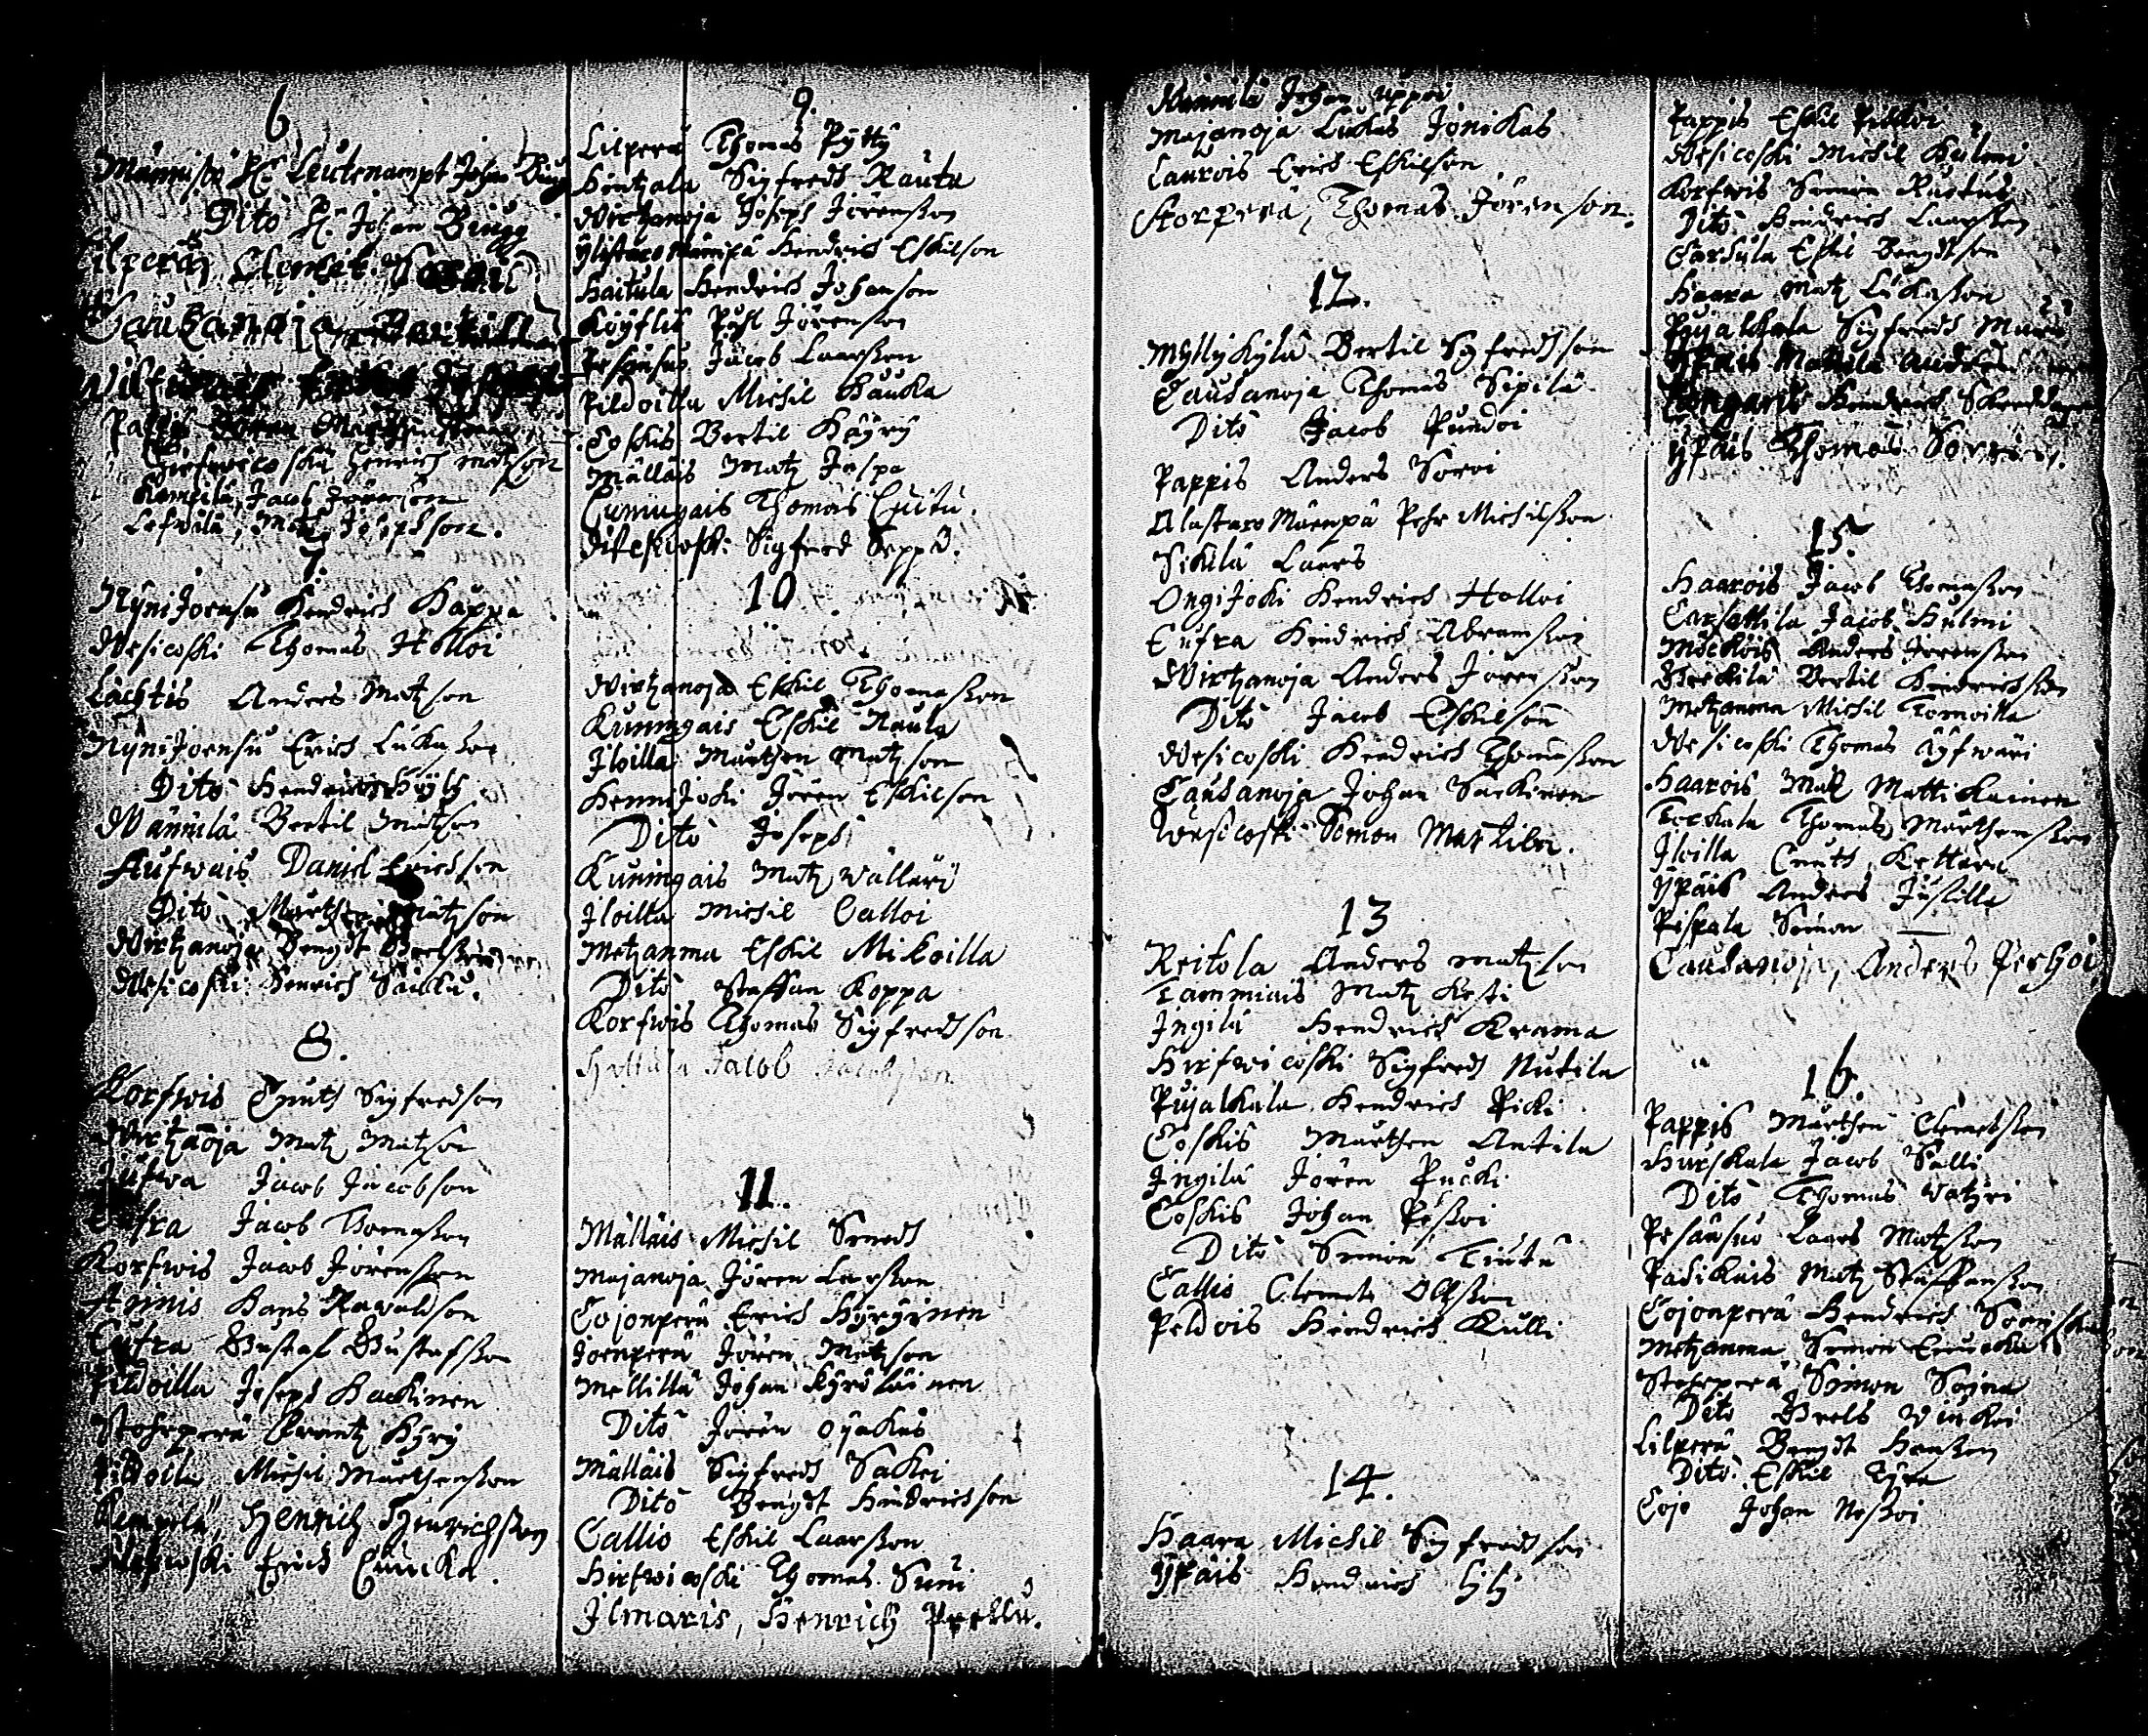 6
Männistö H: Leutenampt Johan Büug
Dito H. Johan Biugg
Lilperä Clemet
Caukanoja
Pappis
Hirfwicoski Henrich Matzson
Kempilä, Jacob Jörenson
Lefwilä, Matz Josepsson.
7.
NÿniJoensu Hendrich Kåppa
Wesicoski Thomas Holloi
Lachtis Anders Matzson
NÿniJoensu Erich Lukasson
Dito Hendrich Höÿlÿ
Wännilä Bertil Matzson
Aufwais Daniel Erichson
Dito Märthen Matzson
Wirtzanoja Bengdt
Wesicoski Henrich Säicku.
8.
Korfwis Cnuth Sigfredson
Wirtzanoja Matz Matzson
Jufwa Jacob Jacobson
Cufra Jacob Thomasson
Korfwis Jacob Jörensson
Annis Hans Rawaldson
Cufra Gustaf Gustafsson
Pildoilla Joseph Hackinen
Stohrperä Frantz Kÿrÿ
Pildoila Michil Märthensson
Kempilä, Henrich Hinrichsson
Wesicoski Erich Cuucka.
9.
Lilperä Thomas Pÿttÿ
Hintzala Sigfredh Rauta
Wirtzanoja Joseph Jörensson
Ylistaro Mänpä Hendrich Eskilson
Haitula Hendrich Johanson
Köÿlis Påhl Jörenson
Pesänsuo Jacob Laarsson
Pildoilla Michil Hauka
Coskis Bertil Käÿrÿ
Mälläis Matz Jaspa
Cuningais Thomas Cuitu.
Wesicoski Sigfred Seppä.
10
Wirtzanoja Eskil Thomasson
Kuningais Eskil Raula
Iloilla Märthen Matzson
HenniJoki Jören Eskilson
Dito Joseph
Kuningais Matz Wällari
Iloilla Michil Calloi
Metzanma Eskil Mikoilla
Dito Staffan Koppa
Korfwis Thomas Sigfredson
Jacob
11.
Mälläis Michil Smedh
Majanoja Jören Larsson
Cojonperä Erich Hÿrÿinen
Joenperä Jören Matzson
Mellilä Johan Kÿröläinen
Dito Jören Oÿakas
Mälläis Sigfredh Sakei
Dito Bengdt Hindrichson
Callio Eskil Laarsson
Hirfwicoski Thomas Suni
Ilmaris, Henrich Prekku.
Wännilä Johan Uppoi
Majanoja Lukas Jonikas
Laurois Erich Eskilson
Storperä, Thomas Jörenson.
12.
Mÿllÿkÿlä Bertil Sigfredson
Caukanoja Thomas Sipilä
Dito Jacob Pundoi
Pappis Anders Soroi
Alastaro Mäenpä Pehr Michilsson
Sikilä Laars
OngiJoki Hendrich Holloi
Cufra Hindrich Abramsson
Wirtzanoja Anders Jörensson
Dito Jacob Eskilson
Wesicoski Hendrich Thomasson
Caukanoja Johan Sackinen
Wesicoski Simon Martiki.
13
Reitola Anders Matzson
Tammiais Matz Kesti
Ingilä Hendrich Krama
Hirfwicoski Sigfredh Nutila
Pujalkala Hendrich Picki
Coskis Märthen Antila
Ingilä Jören Pucki
Coskis Johan Pässoi
Dito Simon Tiutu
Callis Clemet Olsson
Peldois Hindrich Kulli
14.
Haara Michil Sigfredson
Ÿpäis Hendrich Ÿlÿ
Pappis Eskil Pilkoi
Wesicoski Michil Hulmi
Korfwis Simon Rustus
Dito Hindrich Laarsson
Carhula Eskil Bengdtson
Haara Matz Lukasson
Pujalkala Sigfredh Mård
Ypäis Mattila Anders
Kongaris Hendrich
Ypäis Thomas Sorri.
15.
Haarois Jacob Thomasson
Carhattila Jacob Hulmi
Möcköis Anders Jörensson
Greckilä Bertil Hindrichsson
Metzanma Michil Tornoilla
Wesicoski Thomas Kÿfwäri
Haarois Matz Mattikainen
Torkala Thomas Märthensson
Iloilla Cnuth Kettara
Ypäis Anders Jussilla
Pispala Simon
Caukanoja, Anders Perhoi
16.
Pappis Märthen Clemetsson
Hurskala Jacob Salli
Dito Thomas Watzri
Pesänsuo Laars Matzson
Padikais Matz Staffansson
Cojonperä Hendrich
Metzanma Simon Cuucka
Stohrperä Simon Sojna
Dito Grels Winkei
Lilperä Bengdt Hansson
Dito Eskil Tÿra
Cojo Johan Nässoi